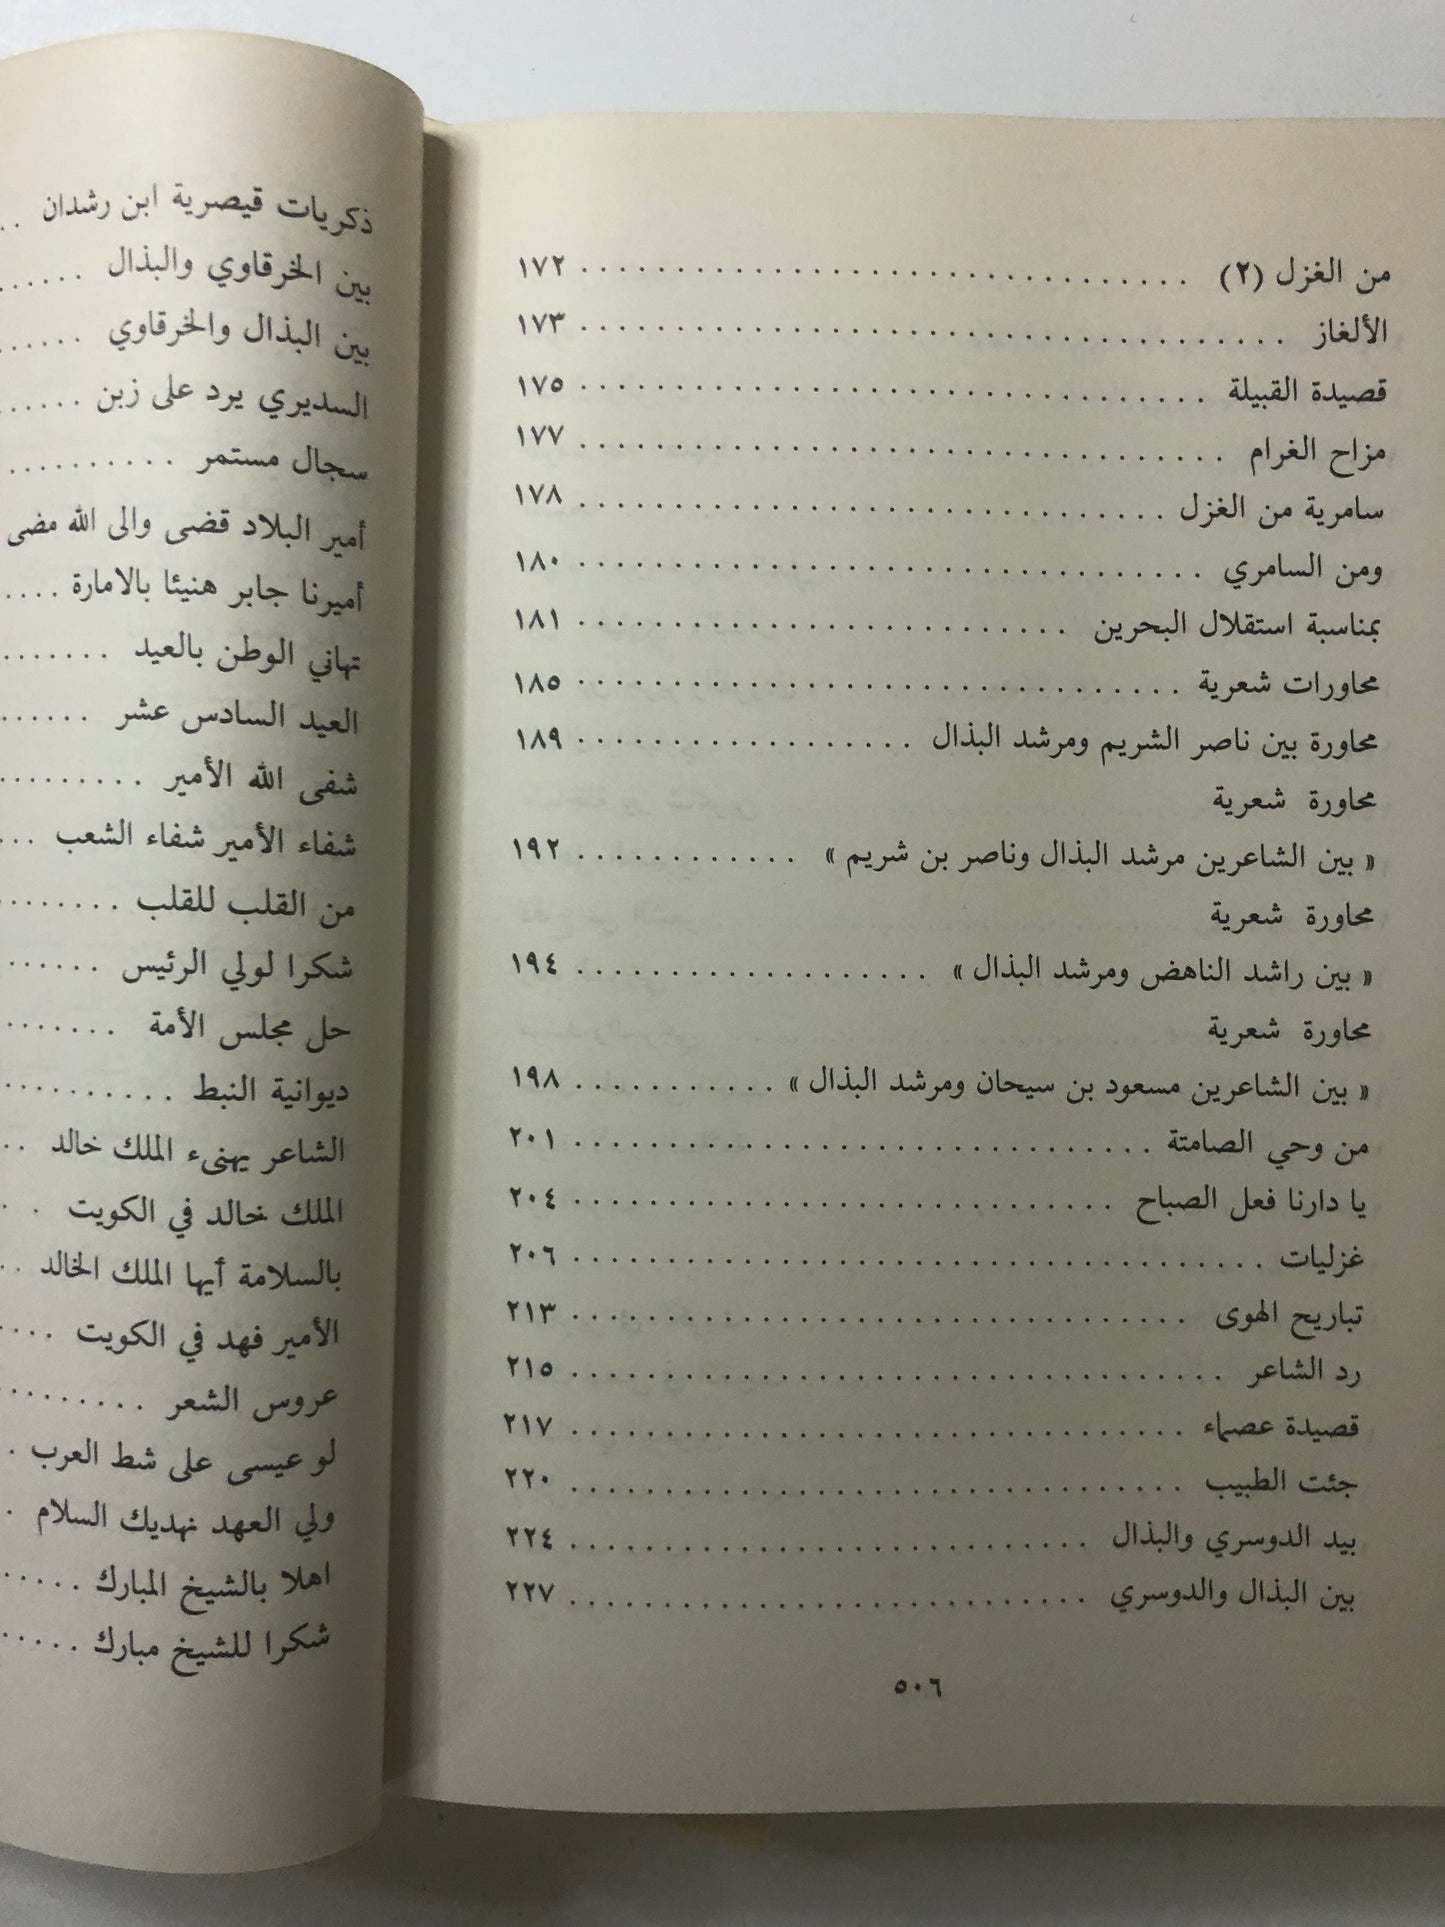 من الغزل (٢) ................................ ١٧٢
الألغاز ..................................... ١٧٣
قصيدة القبيلة ................................. ١٧٥
مزاح الغرام .................................. ١٧٧
سامرية من الغزل ............................... ١٧٨
ومن السامري ................................. ١٨٠
بمناسبة استقلال البحرين .......................... ١٨١
محاورات شعرية ................................ ١٨٥
محاورة بين ناصر الشريم ومرشد البذال .................. ١٨٩
محاورة شعرية
« بين الشاعرين مرشد البذال وناصر بن شريم » ............ ١٩٢
محاورة شعرية
« بين راشد الناهض ومرشد البذال » ................... ١٩٤
محاورة شعرية
« بين الشاعرين مسعود بن سيحان ومرشد البذال » ........... ١٩٨
من وحي الصامتة ............................... ٢٠١
يا دارنا فعل الصباح ............................. ٢٠٤
غزليات ..................................... ٢٠٦
تباريح الهوى ................................. ٢١٣
رد الشاعر ................................... ٢١٥
قصيدة عصماء ................................. ٢١٧
جئت الطبيب ................................. ٢٢٠
بيد الدوسري والبذال ............................ ٢٢٤
بين البذال والدوسري ............................ ٢٢٧
٥٠٦
ذكريات قيصرية ابن رشدان ..
بين الخرقاوي والبذال ......
بين البذال والخرقاوي ......
السديري يرد على زبن ......
سجال مستمر ..........
أمير البلاد قضى والى الله مضى
أميرنا جابر هنيئا بالامارة ....
تهاني الوطن بالعيد .......
العيد السادس عشر ......
شفى الله الأمير .........
شفاء الأمير شفاء الشعب ...
من القلب للقلب ........
شكرا لولي الرئيس .......
حل مجلس الأمة .......
ديوانية النبط ...........
الشاعر يهنىء الملك خالد ..
الملك خالد في الكويت ..
بالسلامة أيها الملك الخالد ..
الأمير فهد في الكويت ....
عروس الشعر .........
لو عيسى على شط العرب .
ولي العهد نهديك السلام .
اهلا بالشيخ المبارك .....
شكرا للشيخ مبارك .....